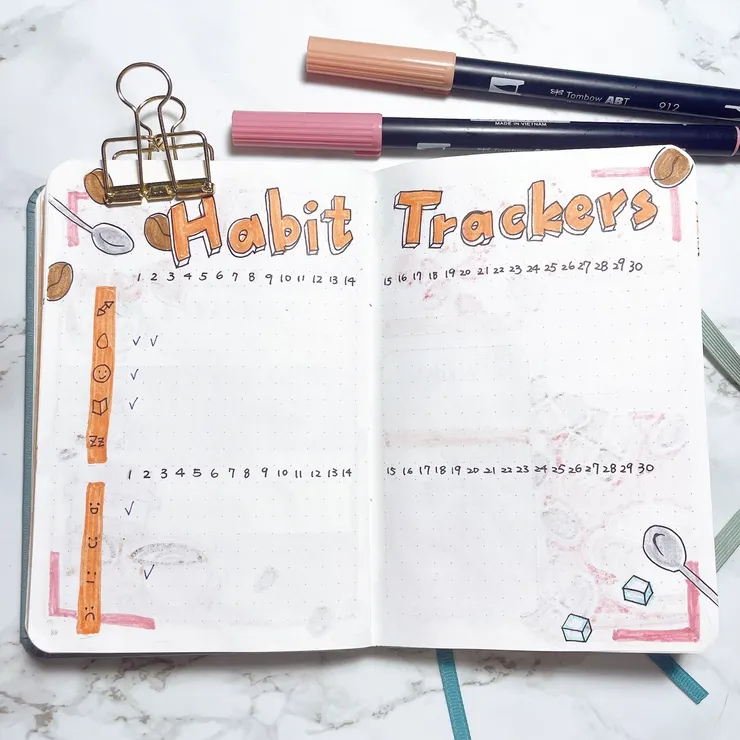 Tombow ABT 912
MADE IN VIETNAM
Habit Trackers
1 2 3 4 5 6 7 8 9 10 11 12 13 14 15 16 17 18 19 20 21 22 23 24 25 26 27 28 29 30
zz
1 2 3 4 5 6 7 8 9 10 11 12 13 14 15 16 17 18 19 20 21 22 23 24 25 26 27 28 29 30